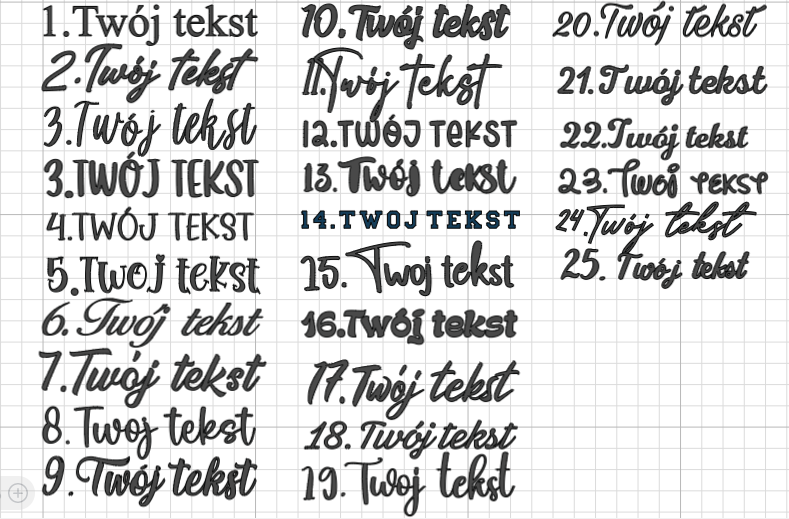 1.Twój tekst
2.Twój tekst
3.Twój tekst
3.TWÓJ TEKST
4.TWÓJ TEKST
5.Twoj tekst
6.Twój tekst
7.Twój tekst
8.Twoj tekst
9.Twój tekst
10.Twój tekst
11.Twój tekst
12.TWÓJ TEKST
13.Twój tekst
14.TWOJ TEKST
15.Twoj tekst
16.Twój tekst
17.Twój tekst
18.Twój tekst
19.Twoj tekst
20.Twój tekst
21.Twój tekst
22.Twój tekst
23.Twoj tekst
24.Twój tekst
25. Twój tekst